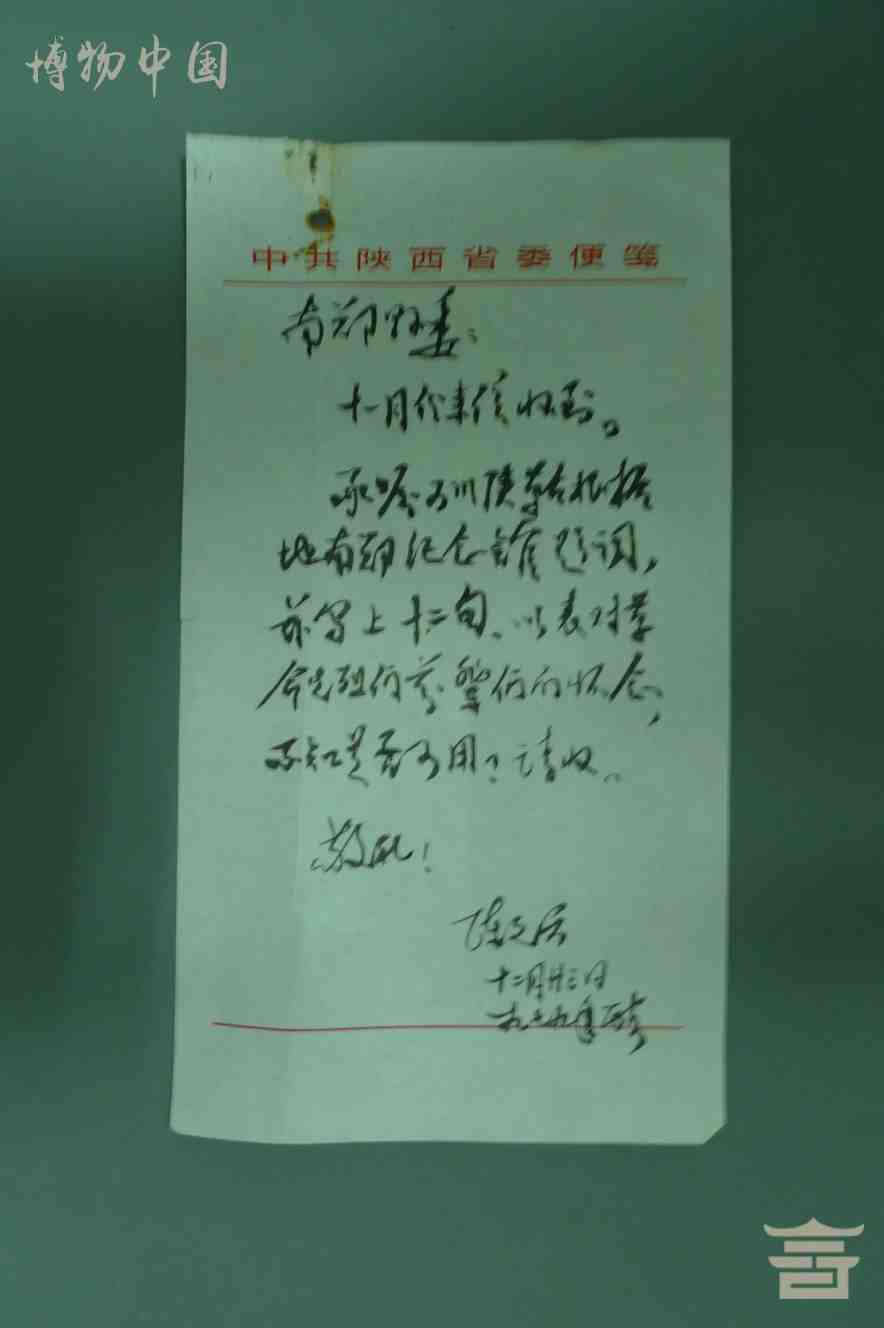 博物中国
中共陕西省委便笺
南郑县委：
十一月份来信收到。
承嘱为川陕革命根据
地南郑纪念馆题词，
兹写上十二句，以表对革
命先烈们、英雄们的怀念，
不知是否可用？请收。
敬礼！
陈文
十二月廿三日
一九七九年